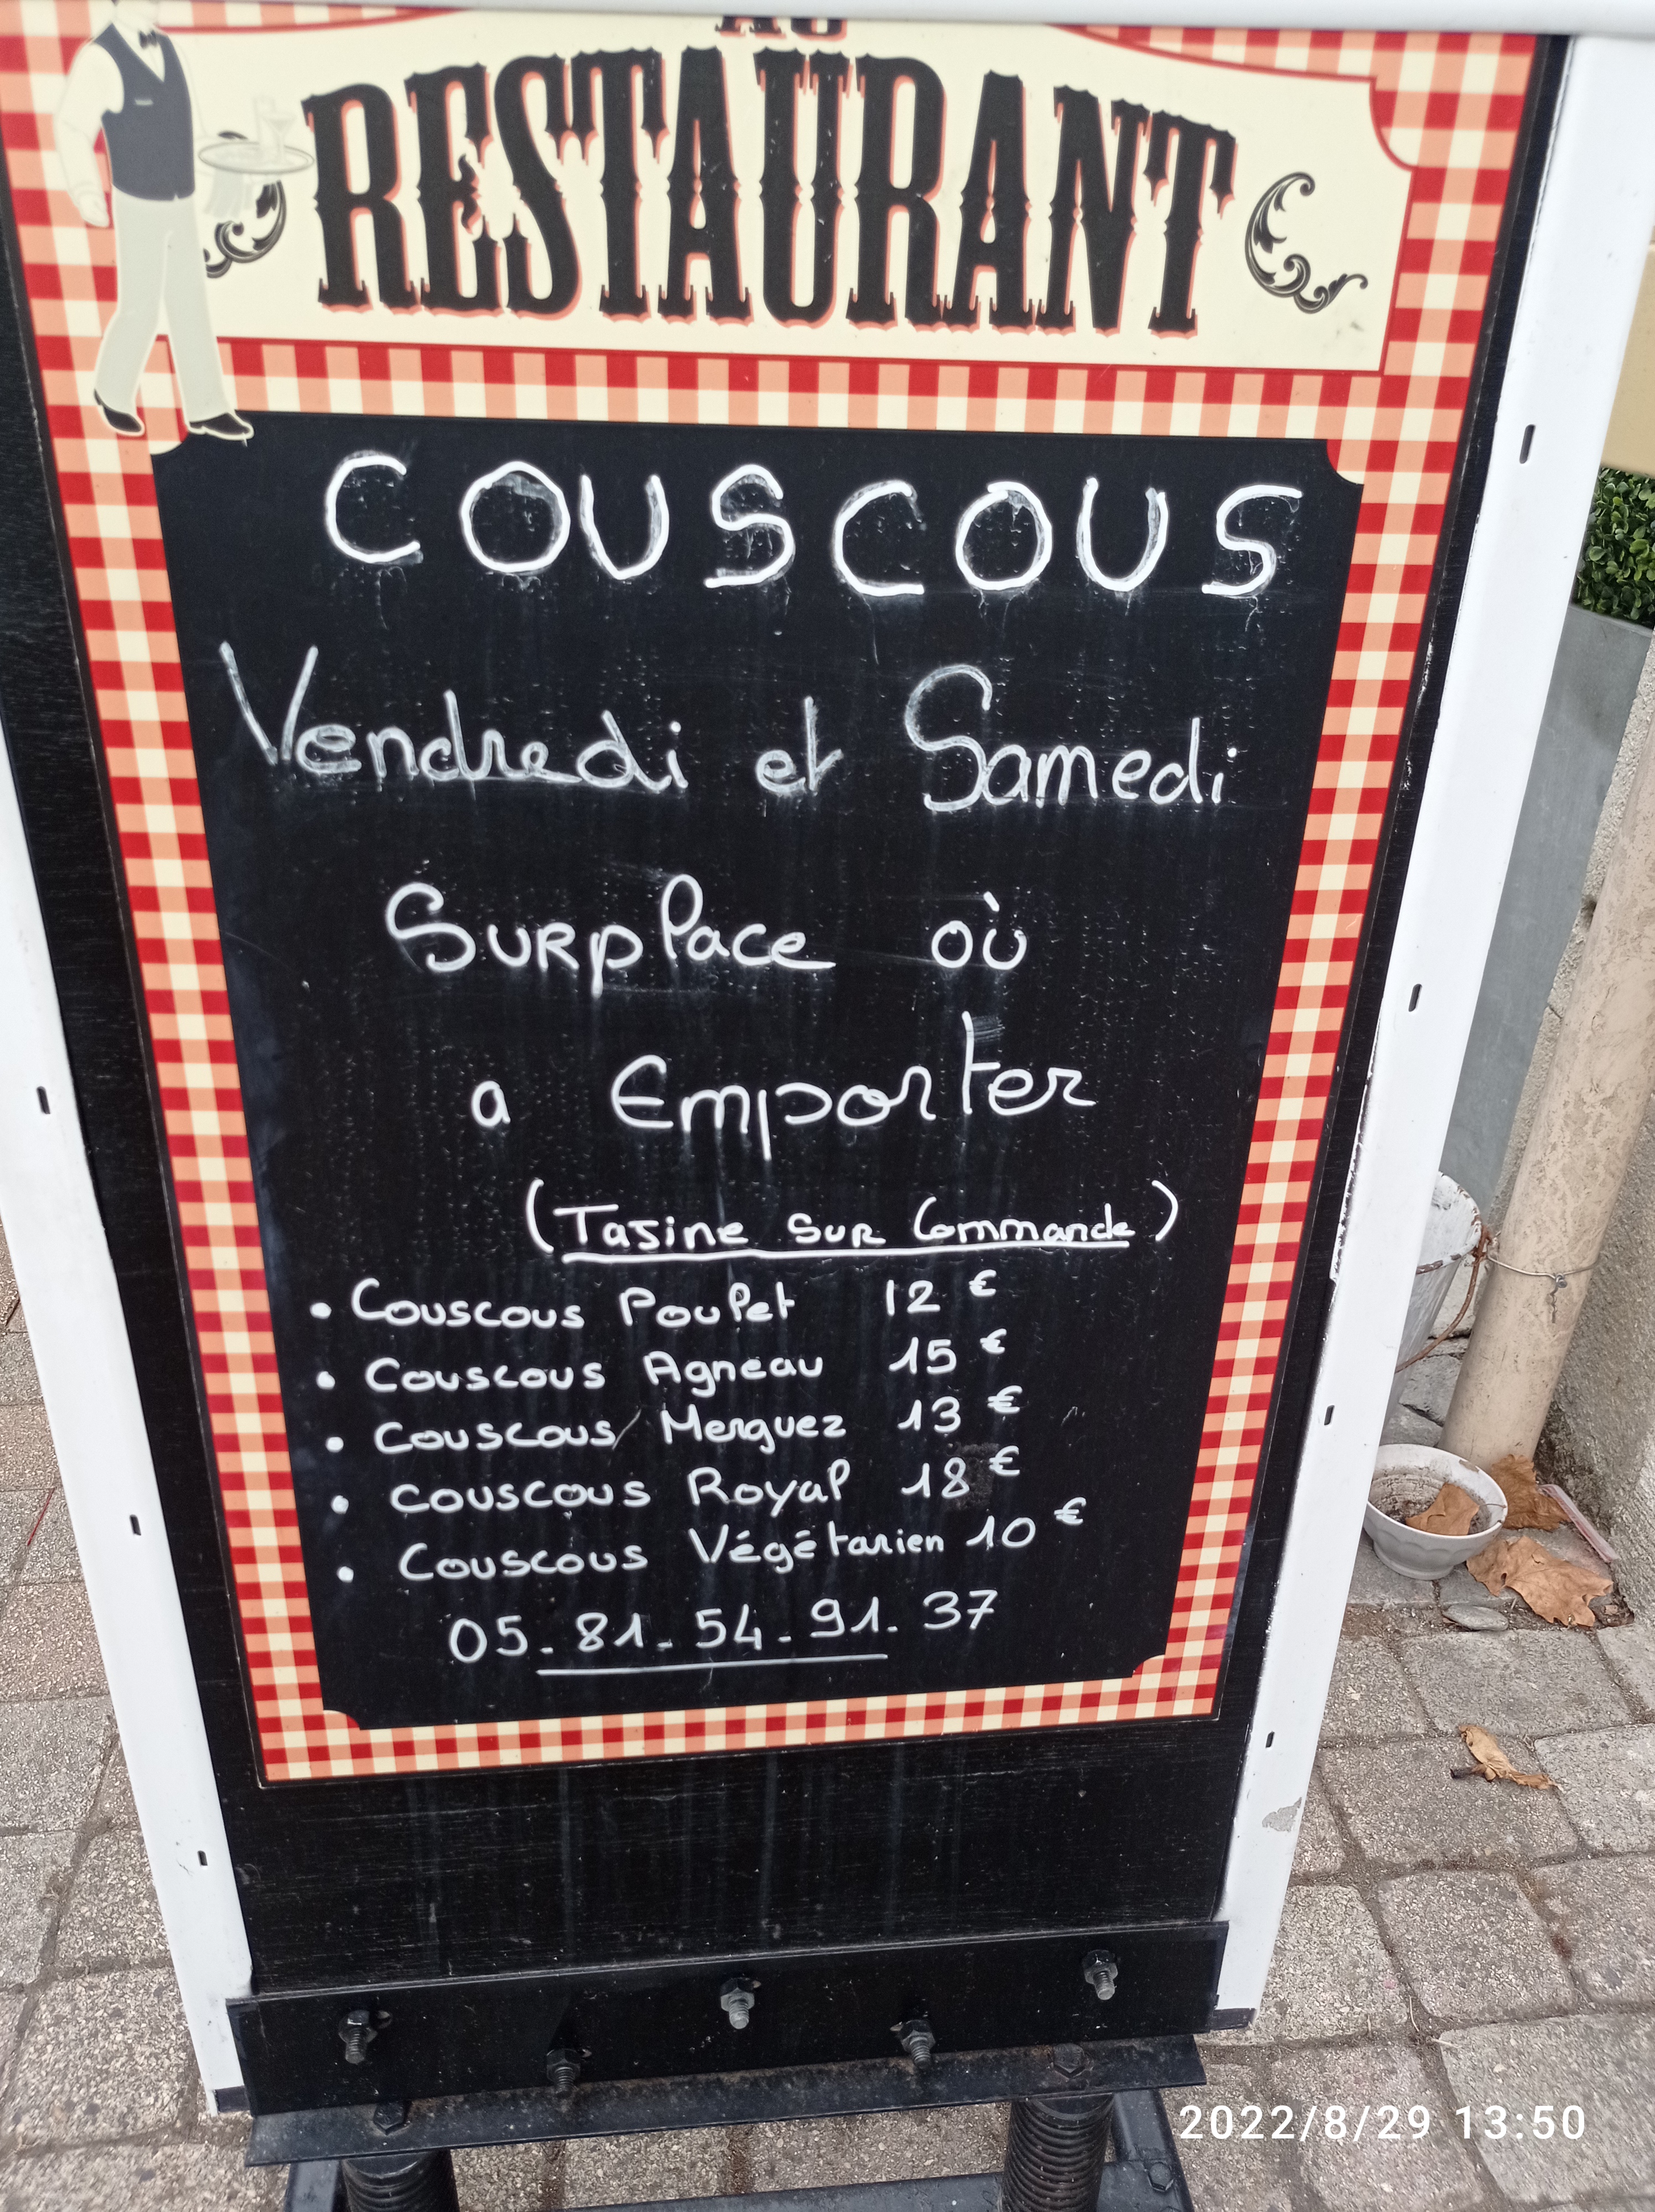 AU
RESTAURANT
COUSCOUS
Vendredi et Samedi
Surplace où
a Emporter
(Tajine sur Commande)
• Couscous Poulet 12 €
• Couscous Agneau 15 €
• Couscous Merguez 13 €
• Couscous Royal 18 €
• Couscous Végétarien 10 €
05-81-54-91-37
2022/8/29 13:50